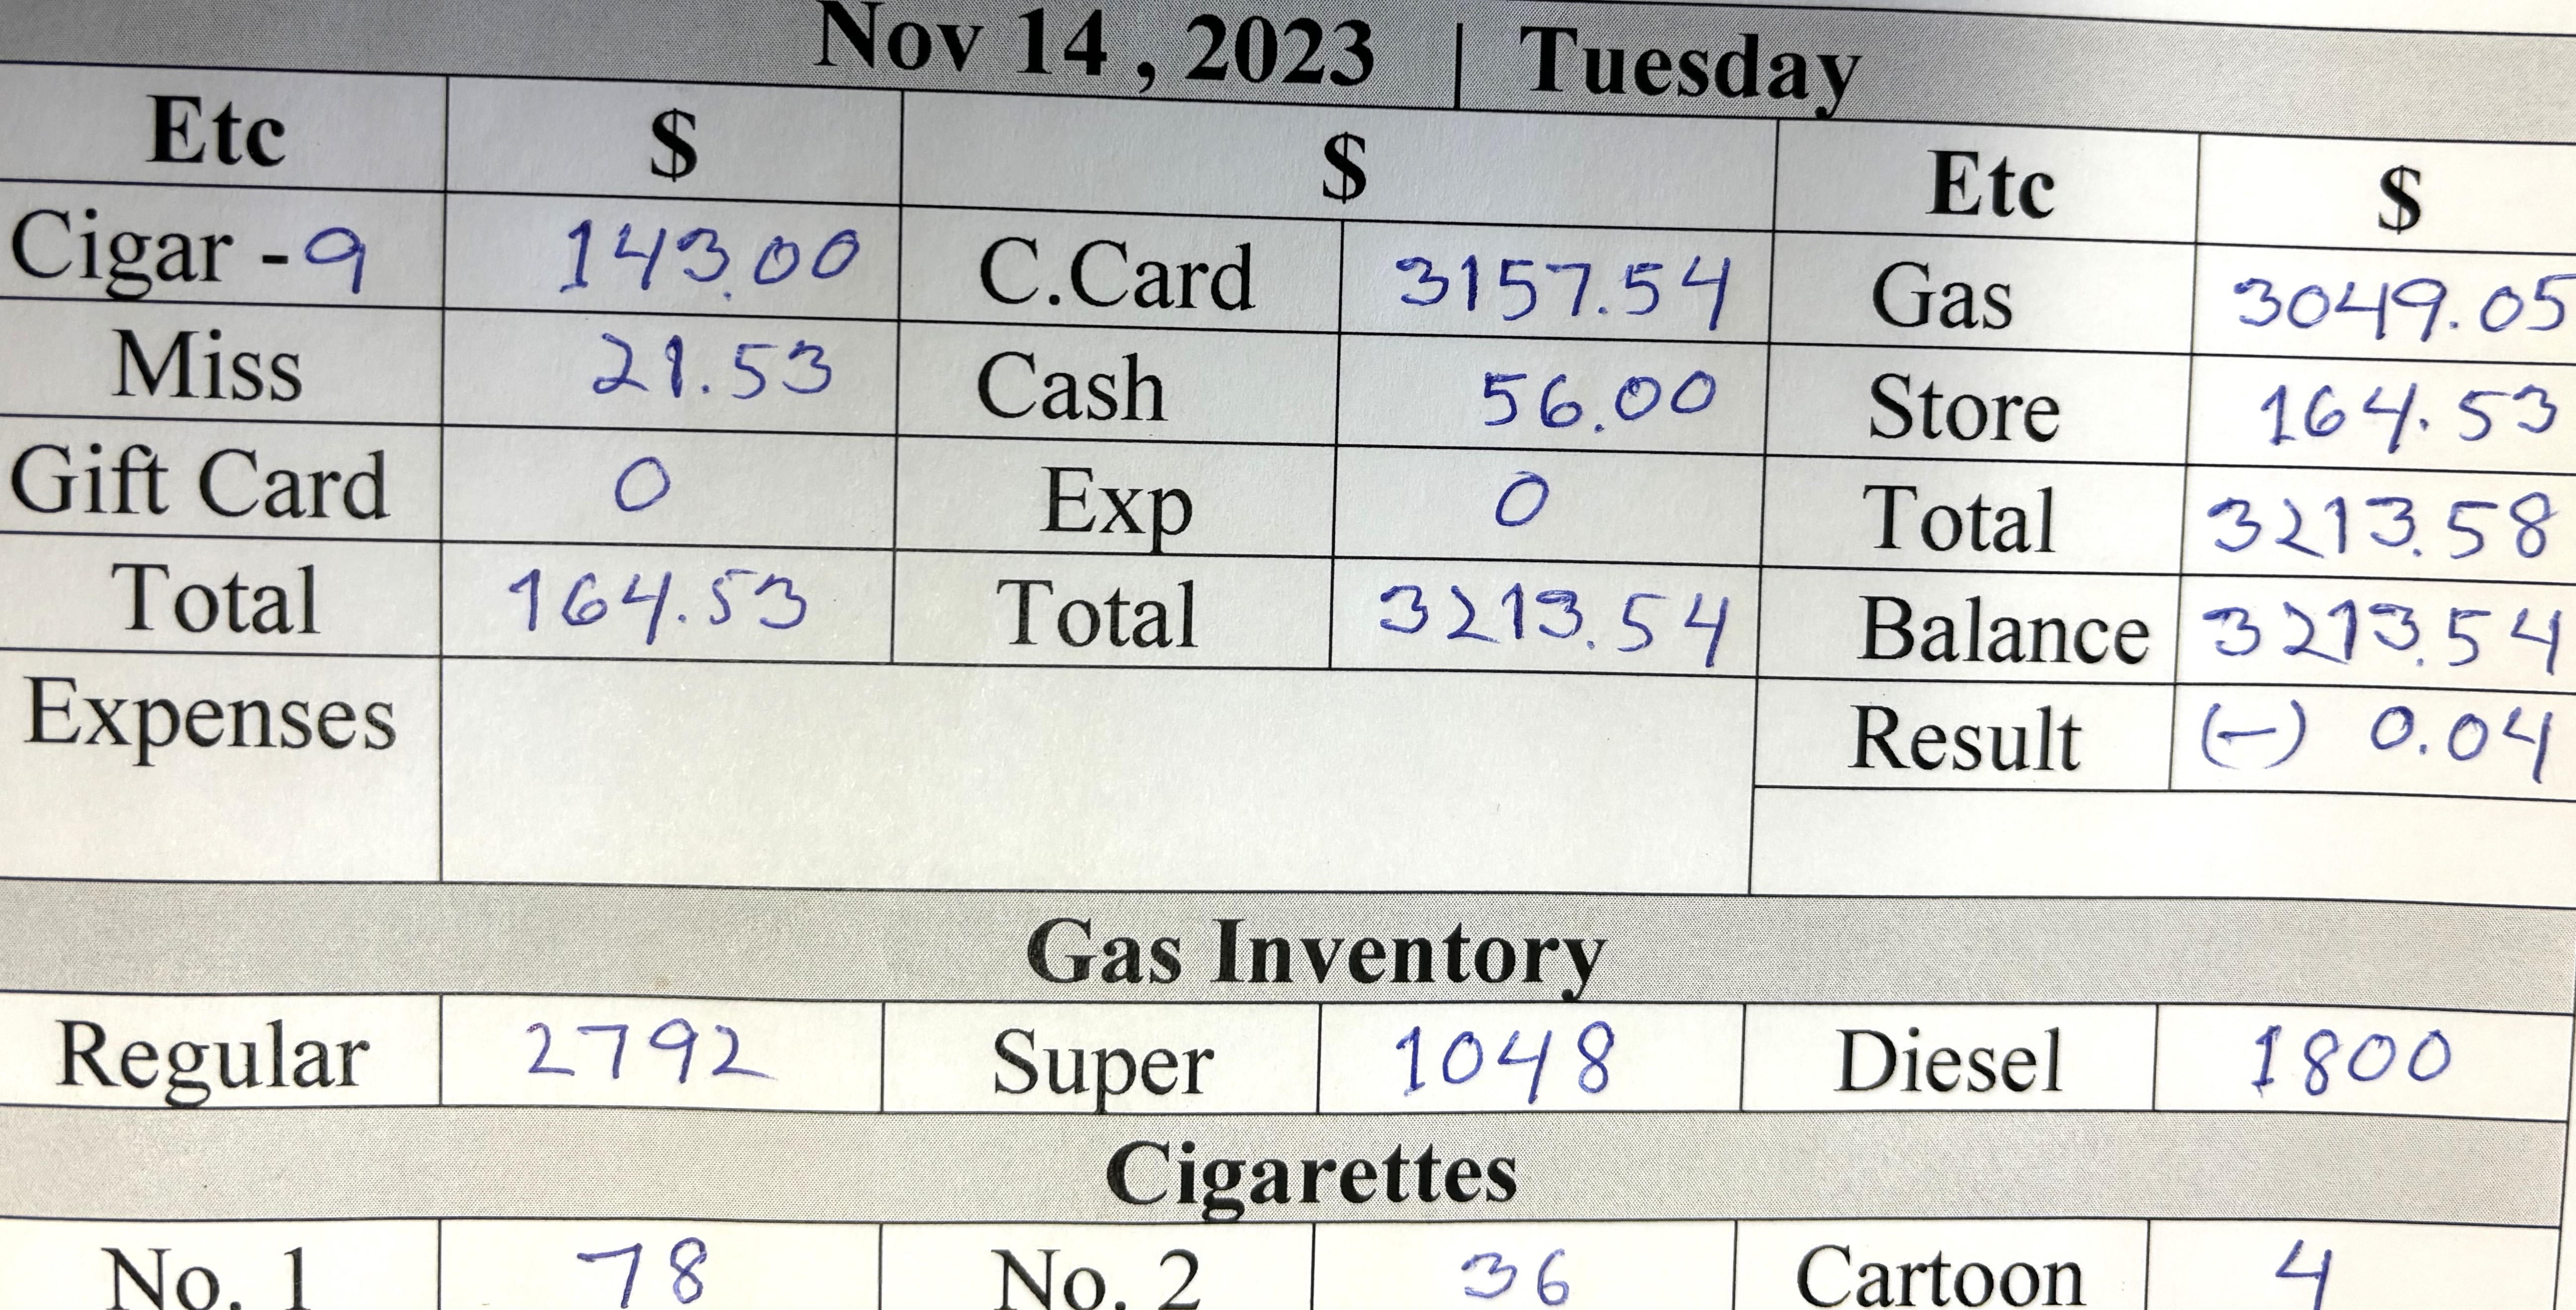 Nov 14 , 2023 | Tuesday
Etc $ $ Etc $
Cigar - 9 143.00 C.Card 3157.54 Gas 3049.05
Miss 21.53 Cash 56.00 Store 164.53
Gift Card 0 Exp 0 Total 3213.58
Total 164.53 Total 3213.54 Balance 3213.54
Expenses Result (-) 0.04
Gas Inventory
Regular 2792 Super 1048 Diesel 1800
Cigarettes
No. 1 78 No. 2 36 Cartoon 4